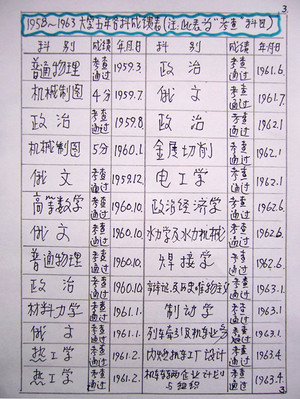 3
1958~1963大学五年各科成绩表(注:此表为"考查"科目)
科 别 成绩 年月日 科 别 成绩 年月日
普通物理 考查通过 1959.3. 政 治 考查通过 1961.6.
机械制图 4分 1959.7. 俄 文 考查通过 1961.7.
政 治 考查通过 1959.8. 政 治 考查通过 1962.1
机械制图 5分 1960.1. 金属切削 考查通过 1962.1
俄 文 考查通过 1959.12. 电工学 考查通过 1962.1
高等数学 考查通过 1960.10. 政治经济学 考查通过 1962.6.
俄 文 考查通过 1960.10. 水力学及水力机械 考查通过 1962.6.
普通物理 考查通过 1960.10. 焊接学 考查通过 1962.6.
政 治 考查通过 1960.10. 唯物主义 考查通过 1963.1.
材料力学 考查通过 1961.1. 制动学 考查通过 1963.1.
俄 文 考查通过 1961.1. 列车牵引及机车业务 考查通过 1963.1.
热工学 考查通过 1961.2. 内燃机车工厂设计 考查通过 1963.4.
热工学 考查通过 1961.2. 机车车辆企业计划与组织 考查通过 1963.4.
3